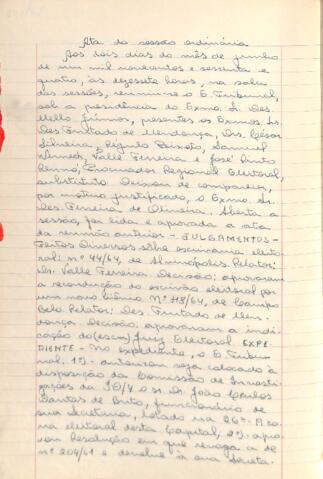 Ata da sessão ordinária
Aos dois dias do mês de junho
de um mil novecentos e sessenta e
quatro, às dezesete horas, na sala
das sessões, reuniu-se o E. Tribunal,
sob a presidência do Exmo. Sr. Des.
Mello Júnior, presentes os Exmos. Srs.
Des. Furtado de Mendonça, Drs. César
Silveira, Régulo Peixoto, Samuel
Werneck, Valle Ferreira e José Pinto
Renno, Procurador Regional Eleitoral,
substituto. Deixou de comparecer,
por motivo justificado, o Exmo. Sr.
Des. Ferreira de Oliveira. Aberta a
sessão, foi lida e aprovada a ata
da reunião anterior - JULGAMENTOS -
Feitos Diversos sôbre escrivania eleito-
ral: nº 44/64, de Relator:
Dr. Valle Ferreira. Decisão: aprovaram
a recondução do escrivão eleitoral por
um novo biênio. Nº 118/64, de Campo
Belo. Relator: Des. Furtado de Men-
donça. Decisão: aprovaram a indi-
cação do (escr) Juiz Eleitoral. EXPE-
DIENTE - No expediente, o E. Tribu-
nal: 1º) - autorizou seja colocado à
disposição da Comissão de Investi-
gações da ID/4 o sr. Dr. João Carlos
Santos de Brito, funcionário de
sua Secretaria, lotado na 26ª Zo-
na eleitoral desta Capital; 2º) - apro-
vou Resolução em que revoga a de
nº 204/61 e devolve à sua Secreta-